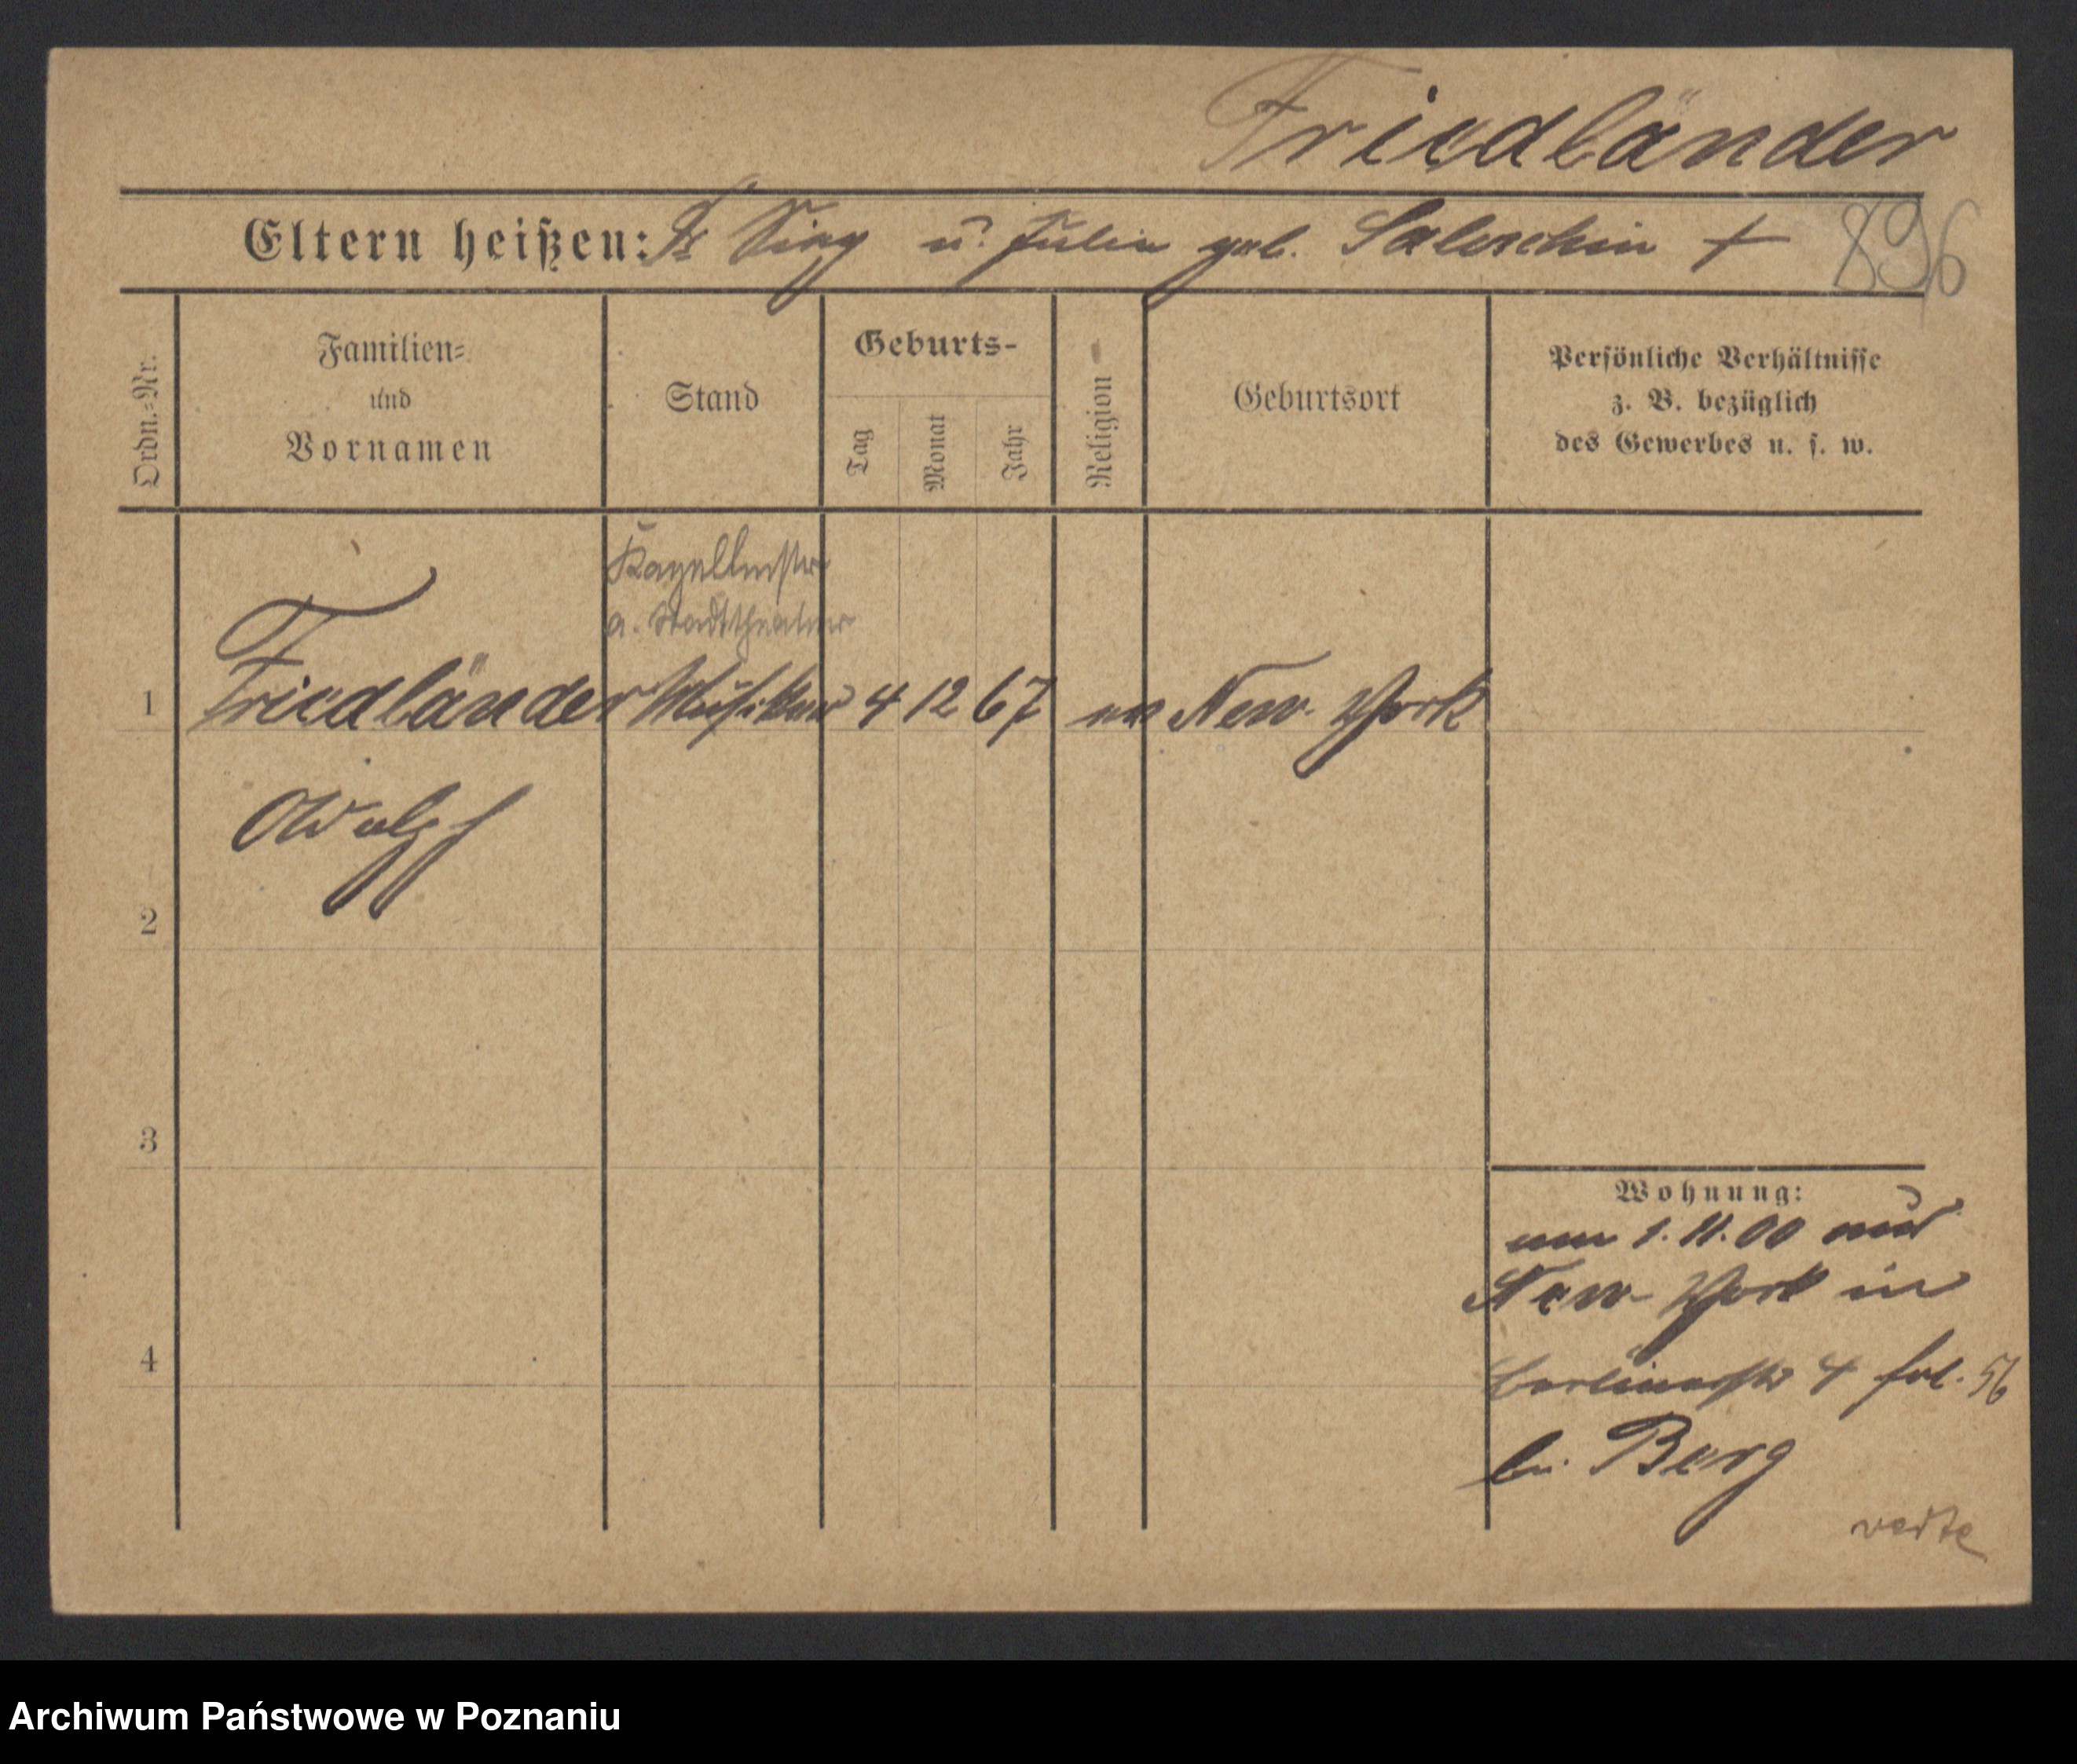 Friedländer
Eltern heißen: Fr u. Julia geb. Saloschin †
896
Ordn.=Nr.
Familien=
und
Vornamen
Stand
Geburts-
Tag
Monat
Jahr
Religion
Geburtsort
Persönliche Verhältnisse
z. B. bezüglich
des Gewerbes u. s. w.
Kapellmstr
a. Stadttheater
1 Friedländer Musiker 4 12 67 New-York
Adolf
2
3
4
Wohnung:
1.11.00 aus
New-York in
Berlinerstr 4 fol. 56
bei Berg
verte
Archiwum Państwowe w Poznaniu